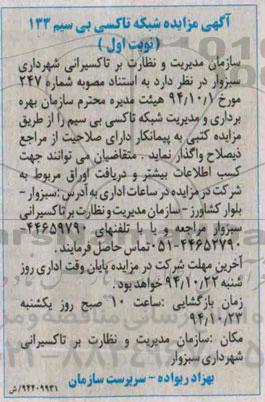 آگهی مزایده شبکه تاکسی بی سیم ۱۳۳
( نوبت اول )
سازمان مدیریت و نظارت بر تاکسیرانی شهرداری
سبزوار در نظر دارد به استناد مصوبه شماره ۲۴۷
مورخ ۹۴/۱۰/۱ هیئت مدیره محترم سازمان بهره
برداری و مدیریت شبکه تاکسی بی سیم را از طریق
مزایده کتبی به پیمانکار دارای صلاحیت از مراجع
ذیصلاح واگذار نماید . متقاضیان می توانند جهت
کسب اطلاعات بیشتر و دریافت اوراق مربوط به
شرکت در مزایده در ساعات اداری به آدرس :سبزوار -
بلوار کشاورز - سازمان مدیریت و نظارت بر تاکسیرانی
سبزوار مراجعه و یا با تلفنهای ۴۴۶۵۹۷۹۰-
۴۴۶۵۲۷۹۰-۰۵۱تماس حاصل فرمایند .
آخرین مهلت شرکت در مزایده پایان وقت اداری روز
شنبه ۹۴/۱۰/۲۲ خواهدبود .
زمان بازگشایی :ساعت ۱۰ صبح روز یکشنبه
۹۴/۱۰/۲۳
مکان :سازمان مدیریت و نظارت بر تاکسیرانی
شهرداری سبزوار
بهزاد ریواده - سرپرست سازمان
۹۴۴۰۹۹۳۱/ش